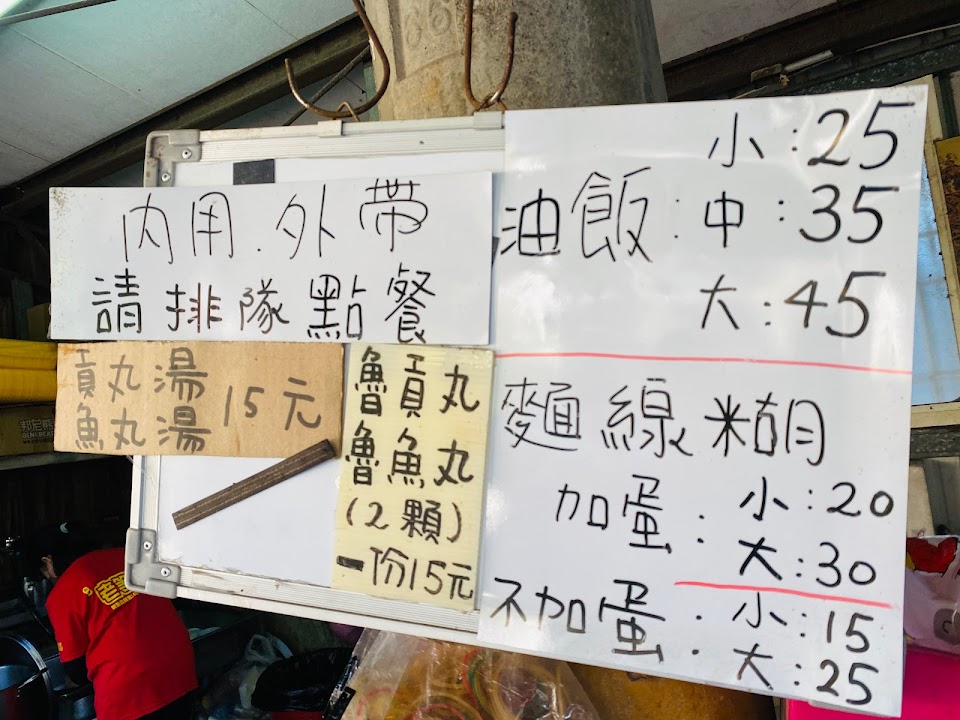 內用.外帶
請排隊點餐
貢丸湯
魚丸湯
15元
魯貢丸
魯魚丸
(2顆)
一份15元
小:25
油飯:中:35
大:45
麵線糊
加蛋:小:20
大:30
不加蛋:小:15
大:25